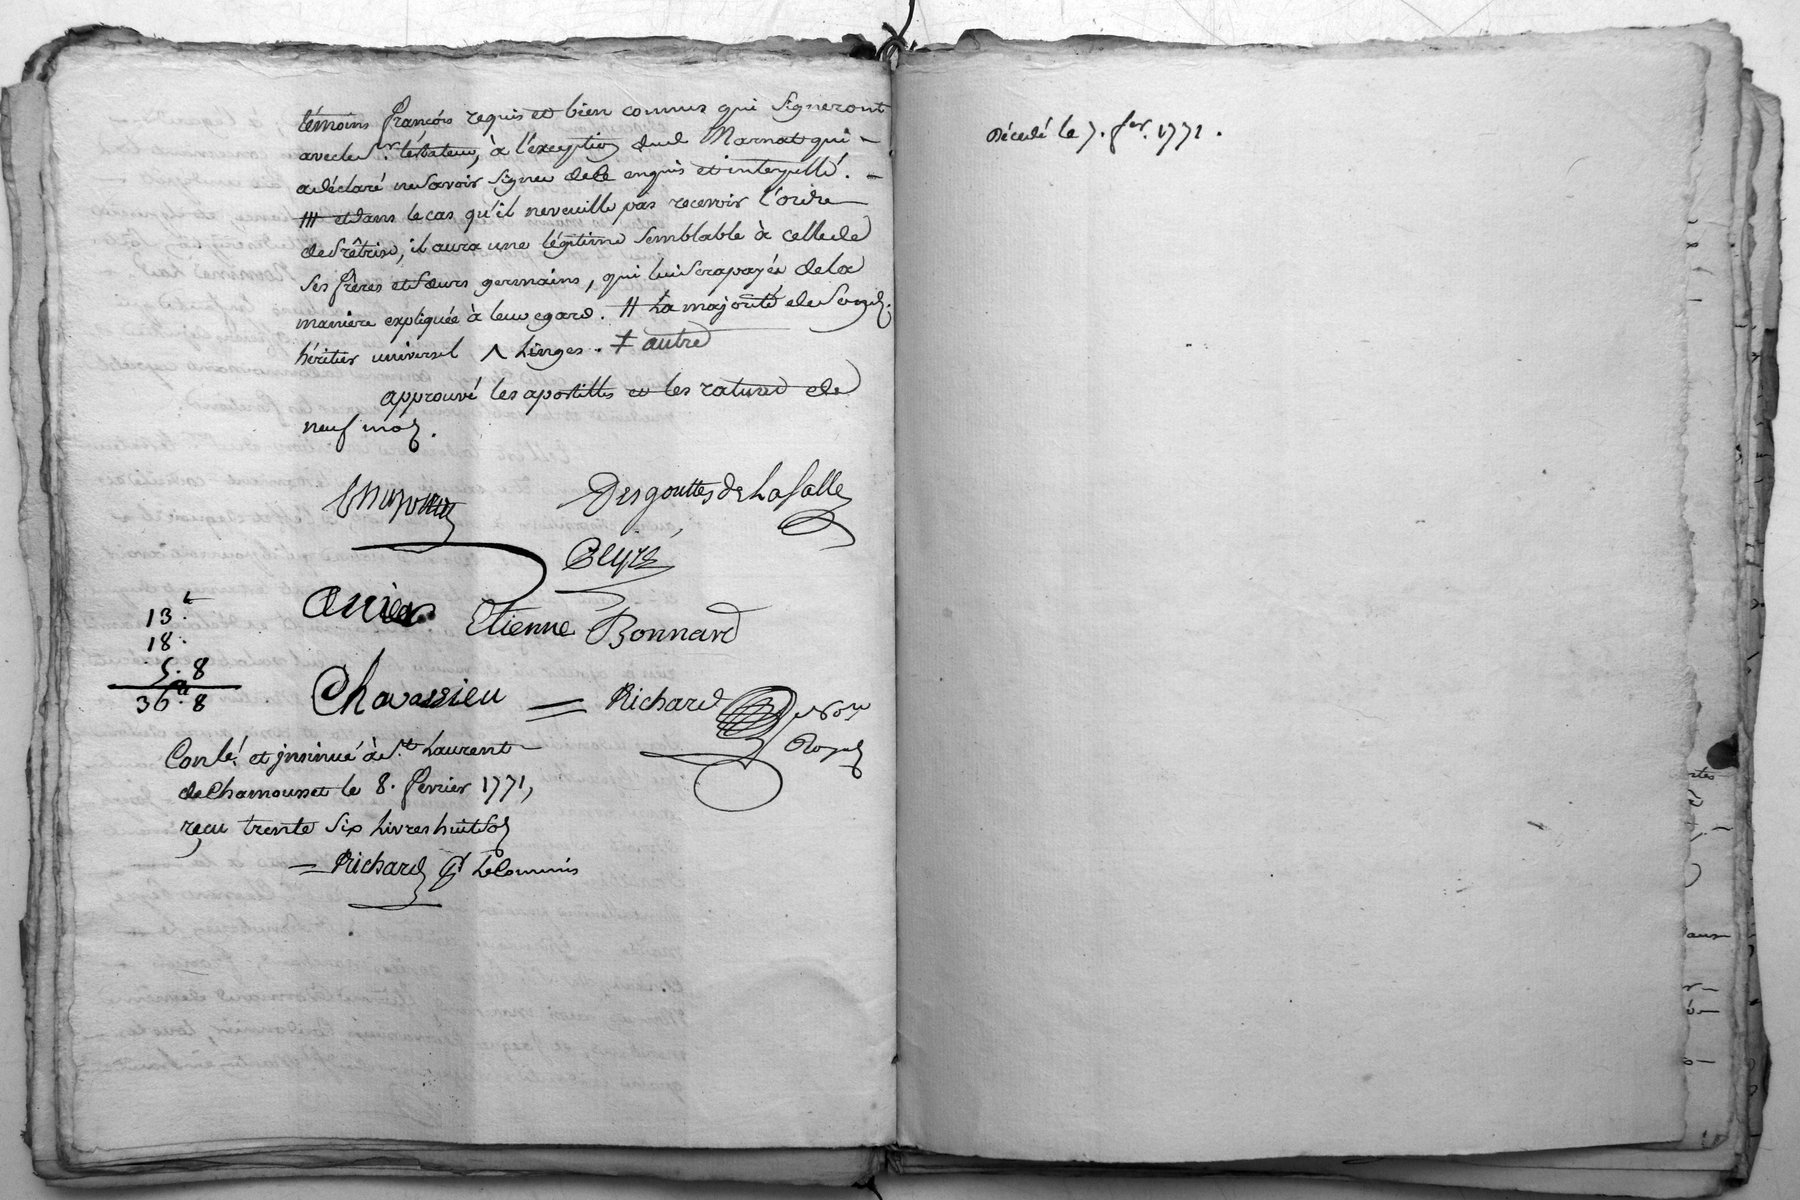 témoins françois requis et bien connus qui signeront
avec led. Sr. téstateur, à l'exception dud Marnat qui
a déclaré ne savoir signer de ce enquis et interpellé.
/// et dans le cas qu'il ne veuille pas recevoir l'ordre
de Prêtrise, il aura une légitime semblable à celle de
ses frères et soeurs germains, qui lui sera payée de la
maniere expliquée à leur egard. // La majorité de son d.
héritier universel ^ Linges. ‡ autre
approuvé les apostilles et les ratures de
neuf mots.
Desgouttes de La Salle
Etienne Bonnard
13.ᴸ
18.
5. 8
36.ᴸ 8
Chavassieu = Richard Nore
Royal
Conlé. et insinué à St. Laurent
de Chamousset le 8. fevrier 1771,
reçu trente six Livres huit sols
= Richard pr. le Commis
Décédé le 7. fer. 1771.